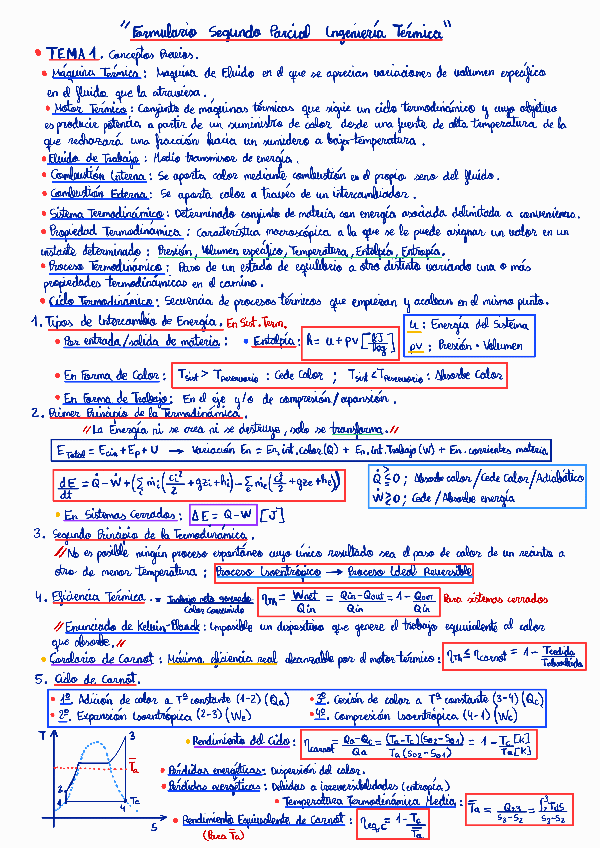 "Formulario Segundo Parcial Ingeniería Térmica"
• TEMA 1. Conceptos Previos.
• Máquina Térmica: Maquina de Fluido en el que se aprecian variaciones de volumen específico
en el fluido que la atraviesa.
• Motor Térmico: Conjunto de máquinas térmicas que sigue un ciclo termodinámico y cuyo objetivo
es producir potencia a partir de un suministro de calor desde una fuente de alta temperatura de la
que rechazará una fracción hacia un sumidero a baja temperatura.
• Fluido de Trabajo: Medio transmisor de energía.
• Combustión Interna: Se aporta calor mediante combustión en el propio seno del fluido.
• Combustión Externa: Se aporta calor a través de un intercambiador.
• Sistema Termodinámico: Determinado conjunto de materia con energía asociada delimitada a conveniencia.
• Propiedad Termodinámica: Característica macroscópica a la que se le puede asignar un valor en un
instante determinado: Presión, Volumen específico, Temperatura, Entalpía, Entropía.
• Proceso Termodinámico: Paso de un estado de equilibrio a otro distinto variando una o más
propiedades termodinámicas en el camino.
• Ciclo Termodinámico: Secuencia de procesos térmicos que empiezan y acaban en el mismo punto.
1. Tipos de Intercambio de Energía. En Sist. Term.
• Por entrada/salida de materia: • Entalpía: h = u + pv [kJ/kg]
u: Energía del Sistema
pv: Presión · Volumen
• En Forma de Calor: Tsist > Treservorio: Cede Calor; Tsist < Treservorio: Absorbe Calor
• En Forma de Trabajo: En el eje y/o de compresión/expansión.
2. Primer Principio de la Termodinámica.
// La Energía ni se crea ni se destruye, solo se transforma. //
ETotal = Ecin + Ep + U → Variación En = En. int. calor (Q) + En. Int. Trabajo (W) + En. corrientes materia
dE/dt = Q̇ - Ẇ + (Σ ṁi (ci²/2 + gzi + hi) - Σ ṁe (ce²/2 + gze + he))
Q̇ ⪌ 0; Absorbe calor/Cede Calor/Adiabático
Ẇ ≷ 0; Cede/Absorbe energía
• En Sistemas Cerrados: ΔE = Q - W [J]
3. Segundo Principio de la Termodinámica.
// No es posible ningún proceso espontáneo cuyo único resultado sea el paso de calor de un recinto a
otro de menor temperatura; Proceso Isoentrópico → Proceso Ideal Reversible
4. Eficiencia Térmica. = Trabajo neto generado/Calor Consumido ηth = Wnet/Qin = Qin - Qout/Qin = 1 - Qout/Qin Para sistemas cerrados
// Enunciado de Kelvin-Planck: Imposible un dispositivo que genere el trabajo equivalente al calor
que absorbe. //
• Corolario de Carnot: Máxima eficiencia real alcanzable por el motor térmico: ηth ≤ ηcarnot = 1 - Tcedida/Tabsorbida
5. Ciclo de Carnot.
• 1º Adición de calor a Tª constante (1-2) (Qa) • 3º. Cesión de calor a Tª constante (3-4) (Qc)
• 2º. Expansión Isoentrópica (2-3) (We) • 4º Compresión Isoentrópica (4-1) (Wc)
T 3 T̄a 2 1 4 Ta S
• Rendimiento del Ciclo: ηcarnot = Qa - Qc/Qa = (Ta - Tc)(s02 - s01)/Ta (s02 - s01) = 1 - Tc [K]/Ta [K]
• Pérdidas energéticas: Dispersión del calor.
• Pérdidas exergéticas: Debidas a irreversibilidades (entropía)
• Temperatura Termodinámica Media: T̄a = Q23/s3 - s2 = ∫₂³ Tds/s3 - s2
• Rendimiento Equivalente de Carnot: ηeq,c = 1 - Tc/T̄a
(Para T̄a)